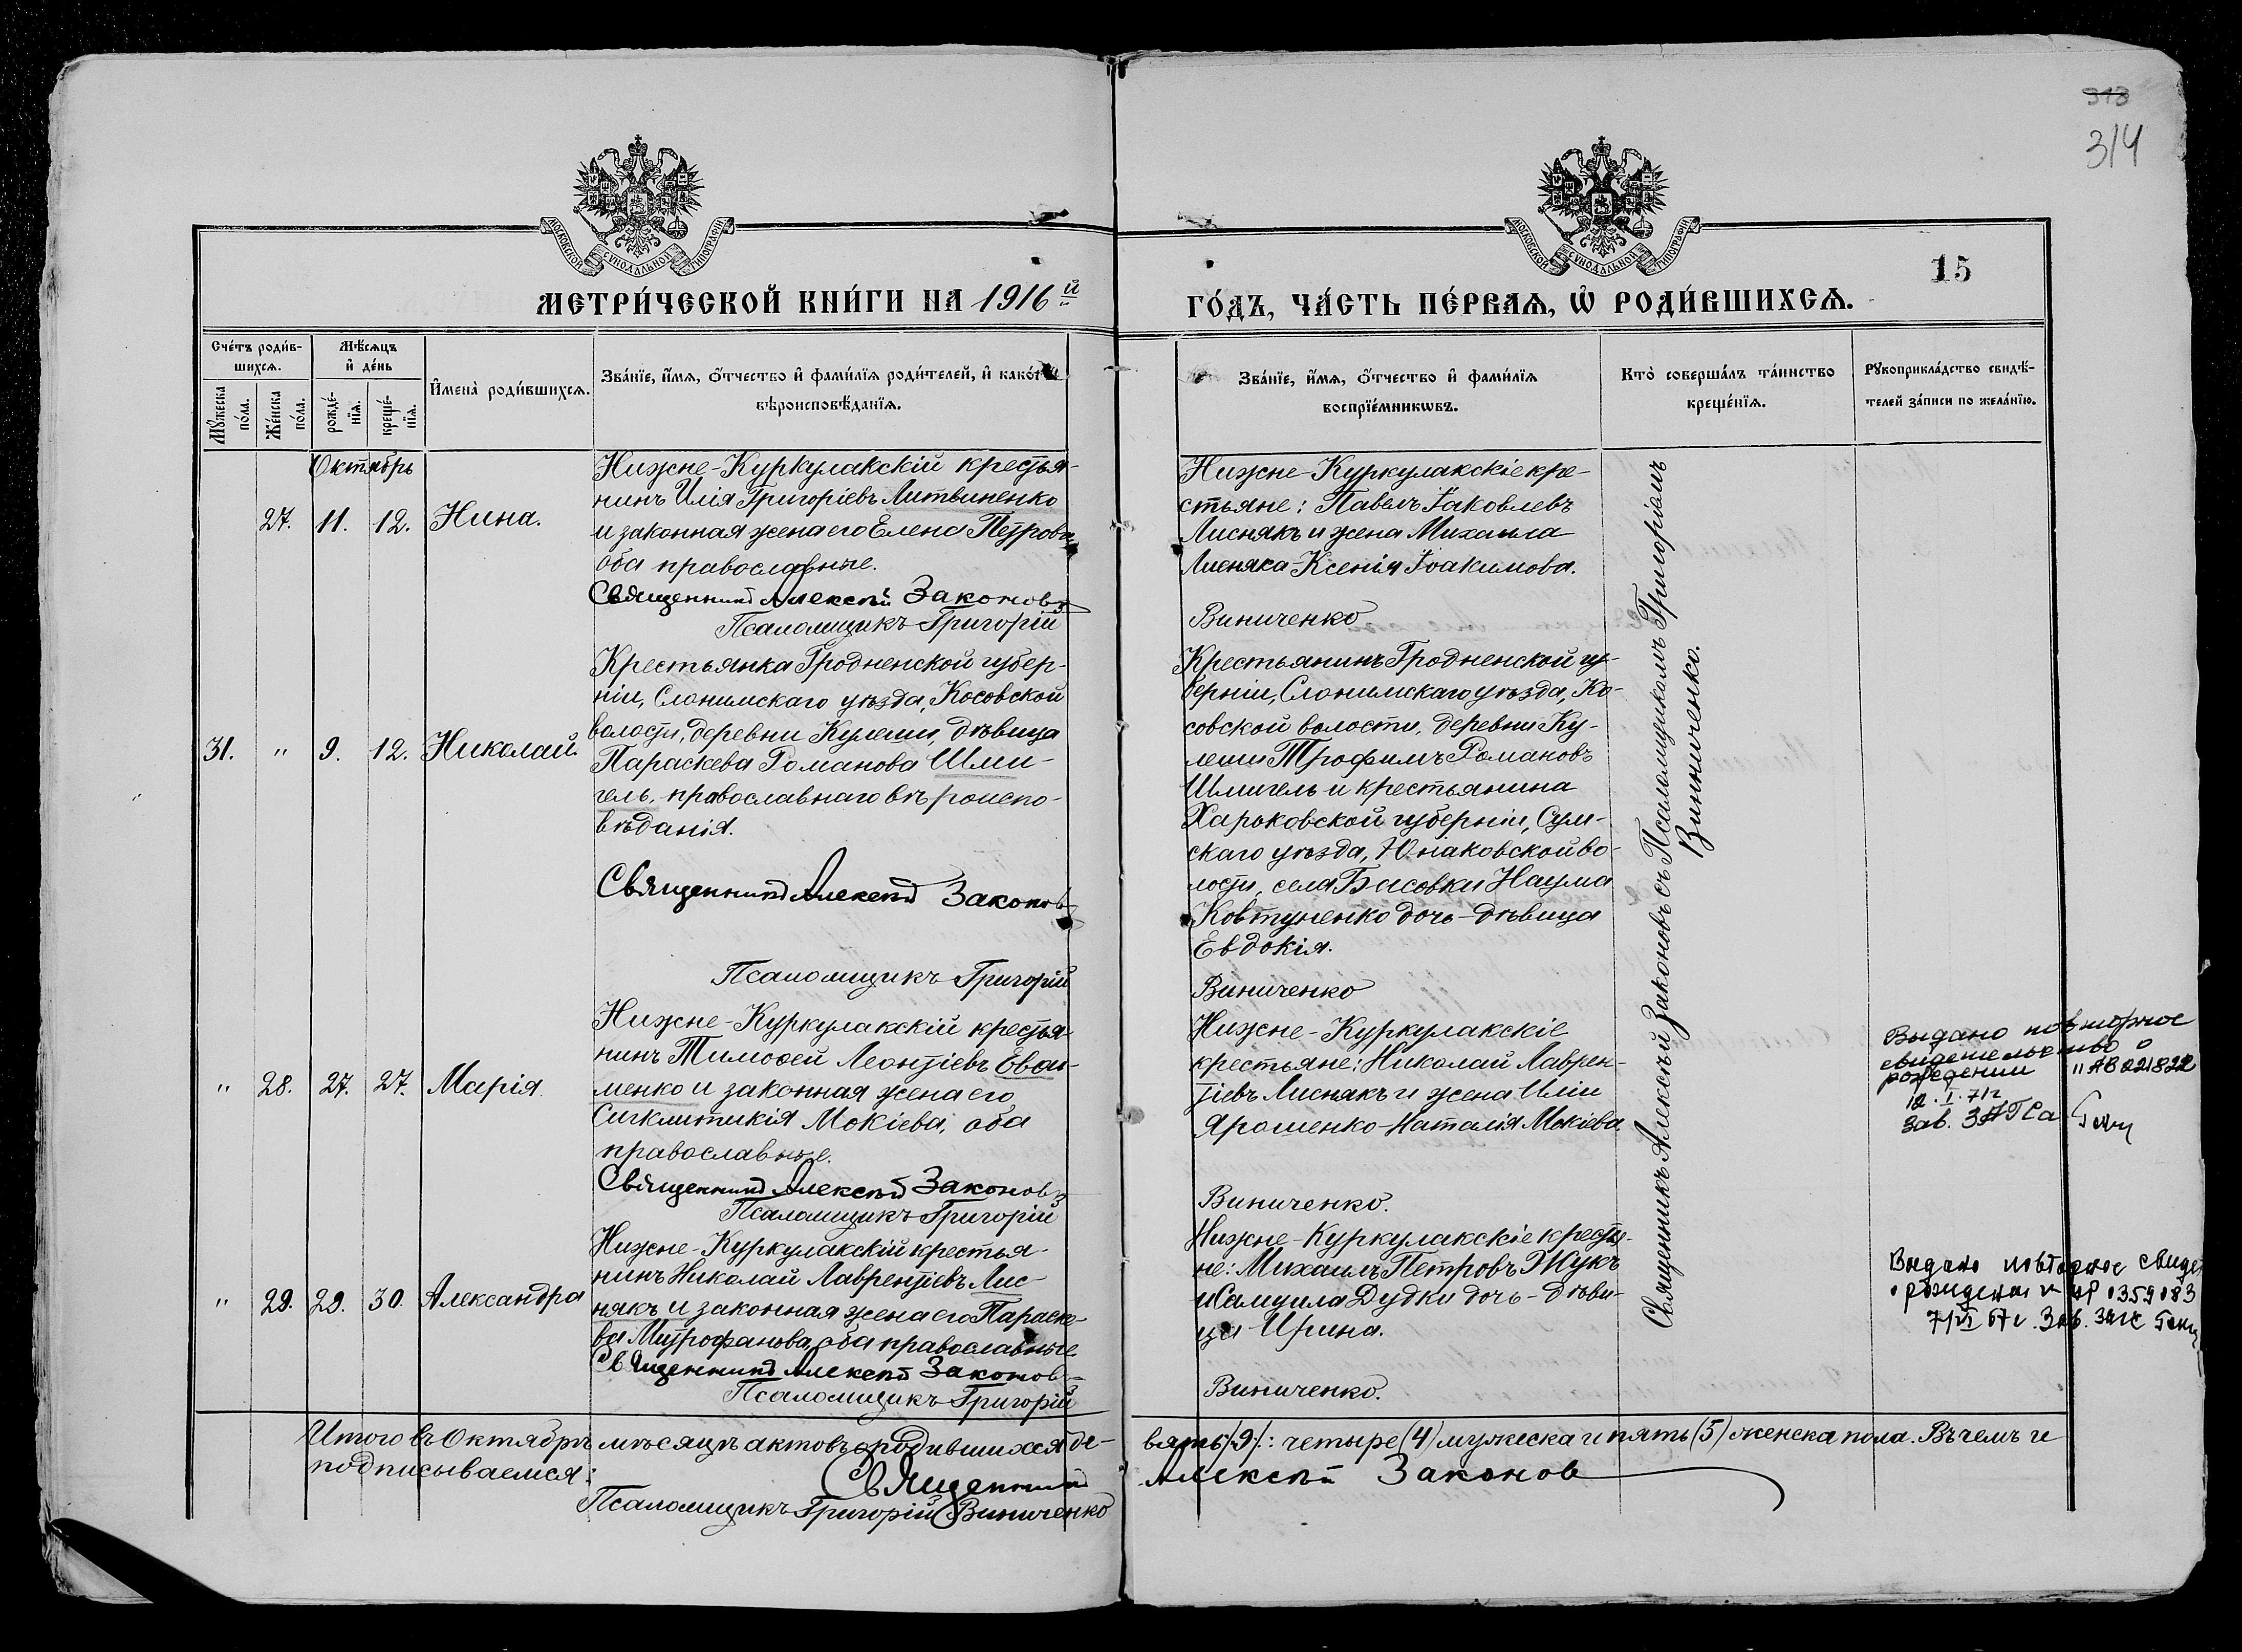 313
314
МОСКОВСКОЙ СѴНОДАЛЬНОЙ ТИПОГРАФІИ
МОСКОВСКОЙ СѴНОДАЛЬНОЙ ТИПОГРАФІИ
15
МЕТРИ́ЧЕСКОЙ КНИ́ГИ НА 1916й
ГО́ДЪ, ЧА́СТЬ ПЕ́РВАѦ, Ѡ҆ РОДИ́ВШИХСѦ.
Сче́тъ роди́в-
шихсѧ.
Мꙋ́жеска
по́ла.
Же́нска
по́ла.
Мѣ́сѧцъ
и҆ де́нь
рожде́-
нїѧ.
креще́-
нїѧ.
И҆мена̀ роди́вшихсѧ.
Зва́нїе, и҆́мѧ, ѻ҆́тчество и҆ фами́лїѧ роди́телей, и҆ како́гѡ
вѣроисповѣ́данїѧ.
Зва́нїе, и҆́мѧ, ѻ҆́тчество и҆ фами́лїѧ
воспрїе́мникѡвъ.
Кто̀ соверша́лъ та́инство
креще́нїѧ.
Рꙋкоприкла́дство свидѣ́-
телей за́писи по жела́нїю.
Октябрь
27. 11. 12. Нина.
Нижне-Куркулакскій крестья-
нинъ Илія Григоріевъ Литвиненко
и законная жена его Елена Петрова,
оба православные.
Священникъ Алексѣй Законовъ
Псаломщикъ Григорій
Нижне-Куркулакскіе кре-
стьяне: Павелъ Іаковлевъ
Лиснякъ и жена Михаила
Лисняка Ксенія Іоакимова.
Виниченко.
31. " 9. 12. Николай.
Крестьянка Гродненской губер-
ніи, Слонимскаго уѣзда, Косовской
волости, деревни Кулеши, дѣвица
Параскева Романова Шми-
гель, православнаго вѣроиспо-
вѣданія.
Священникъ Алексѣй Законовъ
Псаломщикъ Григорій
Крестьянинъ Гродненской гу-
берніи, Слонимскаго уѣзда, Ко-
совской волости, деревни Ку-
леши Трофимъ Романовъ
Шмигель и крестьянина
Харьковской губерніи, Сум-
скаго уѣзда, Юнаковской во-
лости, села Басовки Наума
Ковтуненко дочь-дѣвица
Евдокія.
Виниченко
" 28. 27. 27. Марія.
Нижне-Куркулакскій крестья-
нинъ Тимоѳей Леонтіевъ Евть-
менко и законная жена его
Сигклитикія Мокіева, оба
православные.
Священникъ Алексѣй Законовъ
Псаломщикъ Григорій
Нижне-Куркулакскіе
крестьяне: Николай Лаврен-
тіевъ Лиснякъ и жена Иліи
Ярошенко-Наталія Мокіева.
Виниченко.
Выдано повторное
свидетельство о
рождении ііАВ 021822
12.I.71г
Зав. ЗАГСа
" 29. 29. 30. Александра
Нижне-Куркулакскій крестья-
нинъ Николай Лаврентіевъ Лис-
някъ и законная жена его Параске-
ва Митрофанова, оба православные
Священникъ Алексѣй Законовъ
Псаломщикъ Григорій
Нижне-Куркулакскіе крестья-
не: Михаилъ Петровъ Жукъ
и Самуила Дудки дочь-дѣви-
ца Ирина.
Виниченко.
Выдано повторное свидет
о рождении
Зав. Загс
Священникъ Алексѣй Законовъ съ Псаломщикомъ Григоріемъ
Винниченко.
Итого въ Октябрѣ мѣсяцѣ актовъ родившихся де-
вять /9/: четыре (4) мужеска и пять (5) женска пола. Въ чемъ и
подписываемся: Священникъ Алексѣй Законов
Псаломщикъ Григорій Виниченко